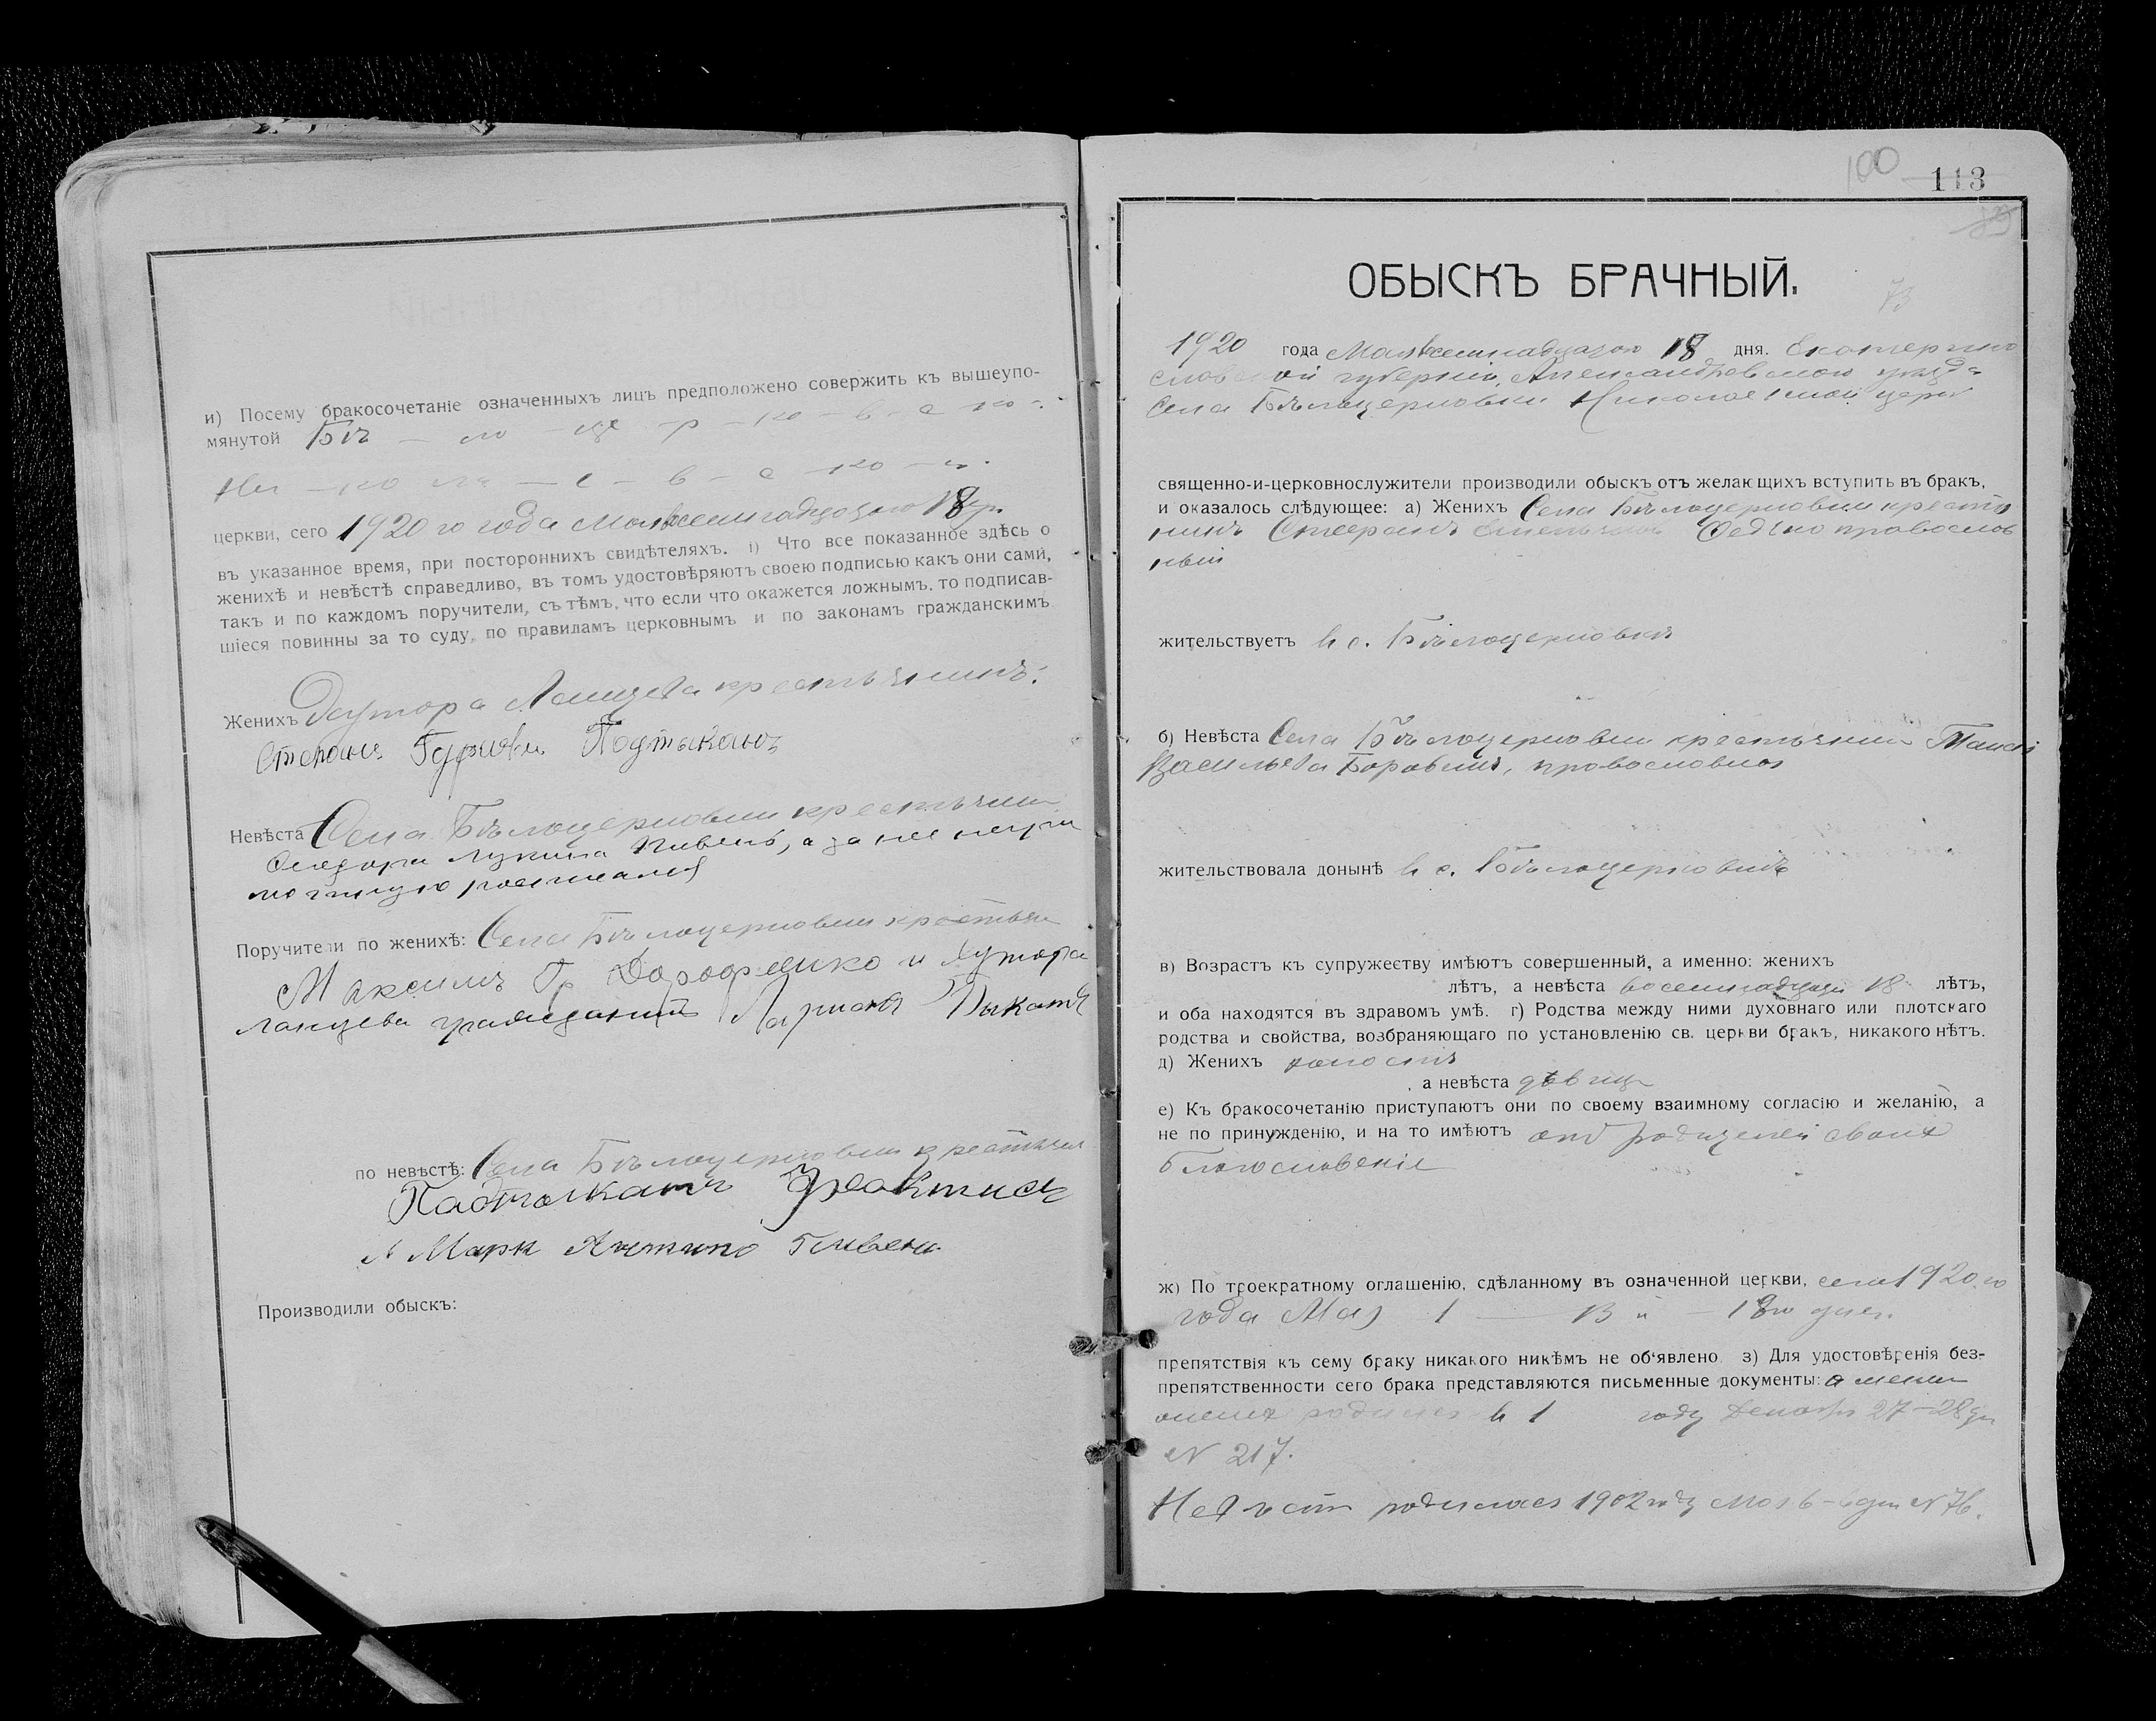 и) Посему бракосочетаніе означенныхъ лицъ предположено совержить къ вышеупо-
мянутой Бѣ — ло — це — р — ко — в — с — ко —
Ни — ко ла — е — в — с — ко — й.
церкви, сего 1920 го года Мая восемнадцатаго 18 дня
въ указанное время, при постороннихъ свидѣтеляхъ. і) Что все показанное здѣсь о
женихѣ и невѣстѣ справедливо, въ томъ удостовѣряютъ своею подписью какъ они сами,
такъ и по каждомъ поручители, съ тѣмъ, что если что окажется ложнымъ, то подписав-
шіеся повинны за то суду, по правиламъ церковнымъ и по законамъ гражданскимъ
Женихъ Хутора крестьянинъ
Степанъ Подтыканъ
Невѣста Села Бѣлоцерковки крестьян
Лукина Пивень, а за нее негра
мотную росписался
Поручители по женихѣ: Села Бѣлоцерковки крестьян
Максимъ Гр Дорофеико и Хутора
гражданинъ
по невѣстѣ: Села Бѣлоцерковки крестьян
Падтыканъ
Марк Пивень
Производили обыскъ:
100
113
73
ОБЫСКЪ БРАЧНЫЙ.
1920 года Мая восемнадцатаго 18 дня. Екатерино
славской губерніи, Александровскаго уѣзда
Села Бѣлоцерковки Николаевской церкв
священно-и-церковнослужители производили обыскъ отъ желающихъ вступить въ бракъ,
и оказалось слѣдующее: а) Женихъ Села Бѣлоцерковки крестья
нинъ Стефанъ православ
ный
жительствуетъ в с. Бѣлоцерковкѣ
б) Невѣста Села Бѣлоцерковки крестьянка Таисія
Васильева православная
жительствовала донынѣ в с. Бѣлоцерковкѣ
в) Возрастъ къ супружеству имѣютъ совершенный, а именно: женихъ
лѣтъ, а невѣста восемнадцати 18 лѣтъ,
и оба находятся въ здравомъ умѣ. г) Родства между ними духовнаго или плотскаго
родства и свойства, возбраняющаго по установленію св. церкви бракъ, никакого нѣтъ.
д) Женихъ холостъ
, а невѣста дѣвица
е) Къ бракосочетанію приступаютъ они по своему взаимному согласію и желанію, а
не по принужденію, и на то имѣютъ отъ родителей своихъ
благословеніе
ж) По троекратному оглашенію, сдѣланному въ означенной церкви, сего 1920 го
года Мая 1 — 13 и — 18го дня.
препятствія къ сему браку никакого никѣмъ не об'явлено з) Для удостовѣренія без-
препятственности сего брака представляются письменные документы: а
родился в 1 году Декабря 27 — 28 дн
N 217.
Невѣста родилась 1902 году Мая 6 — дня N 76.